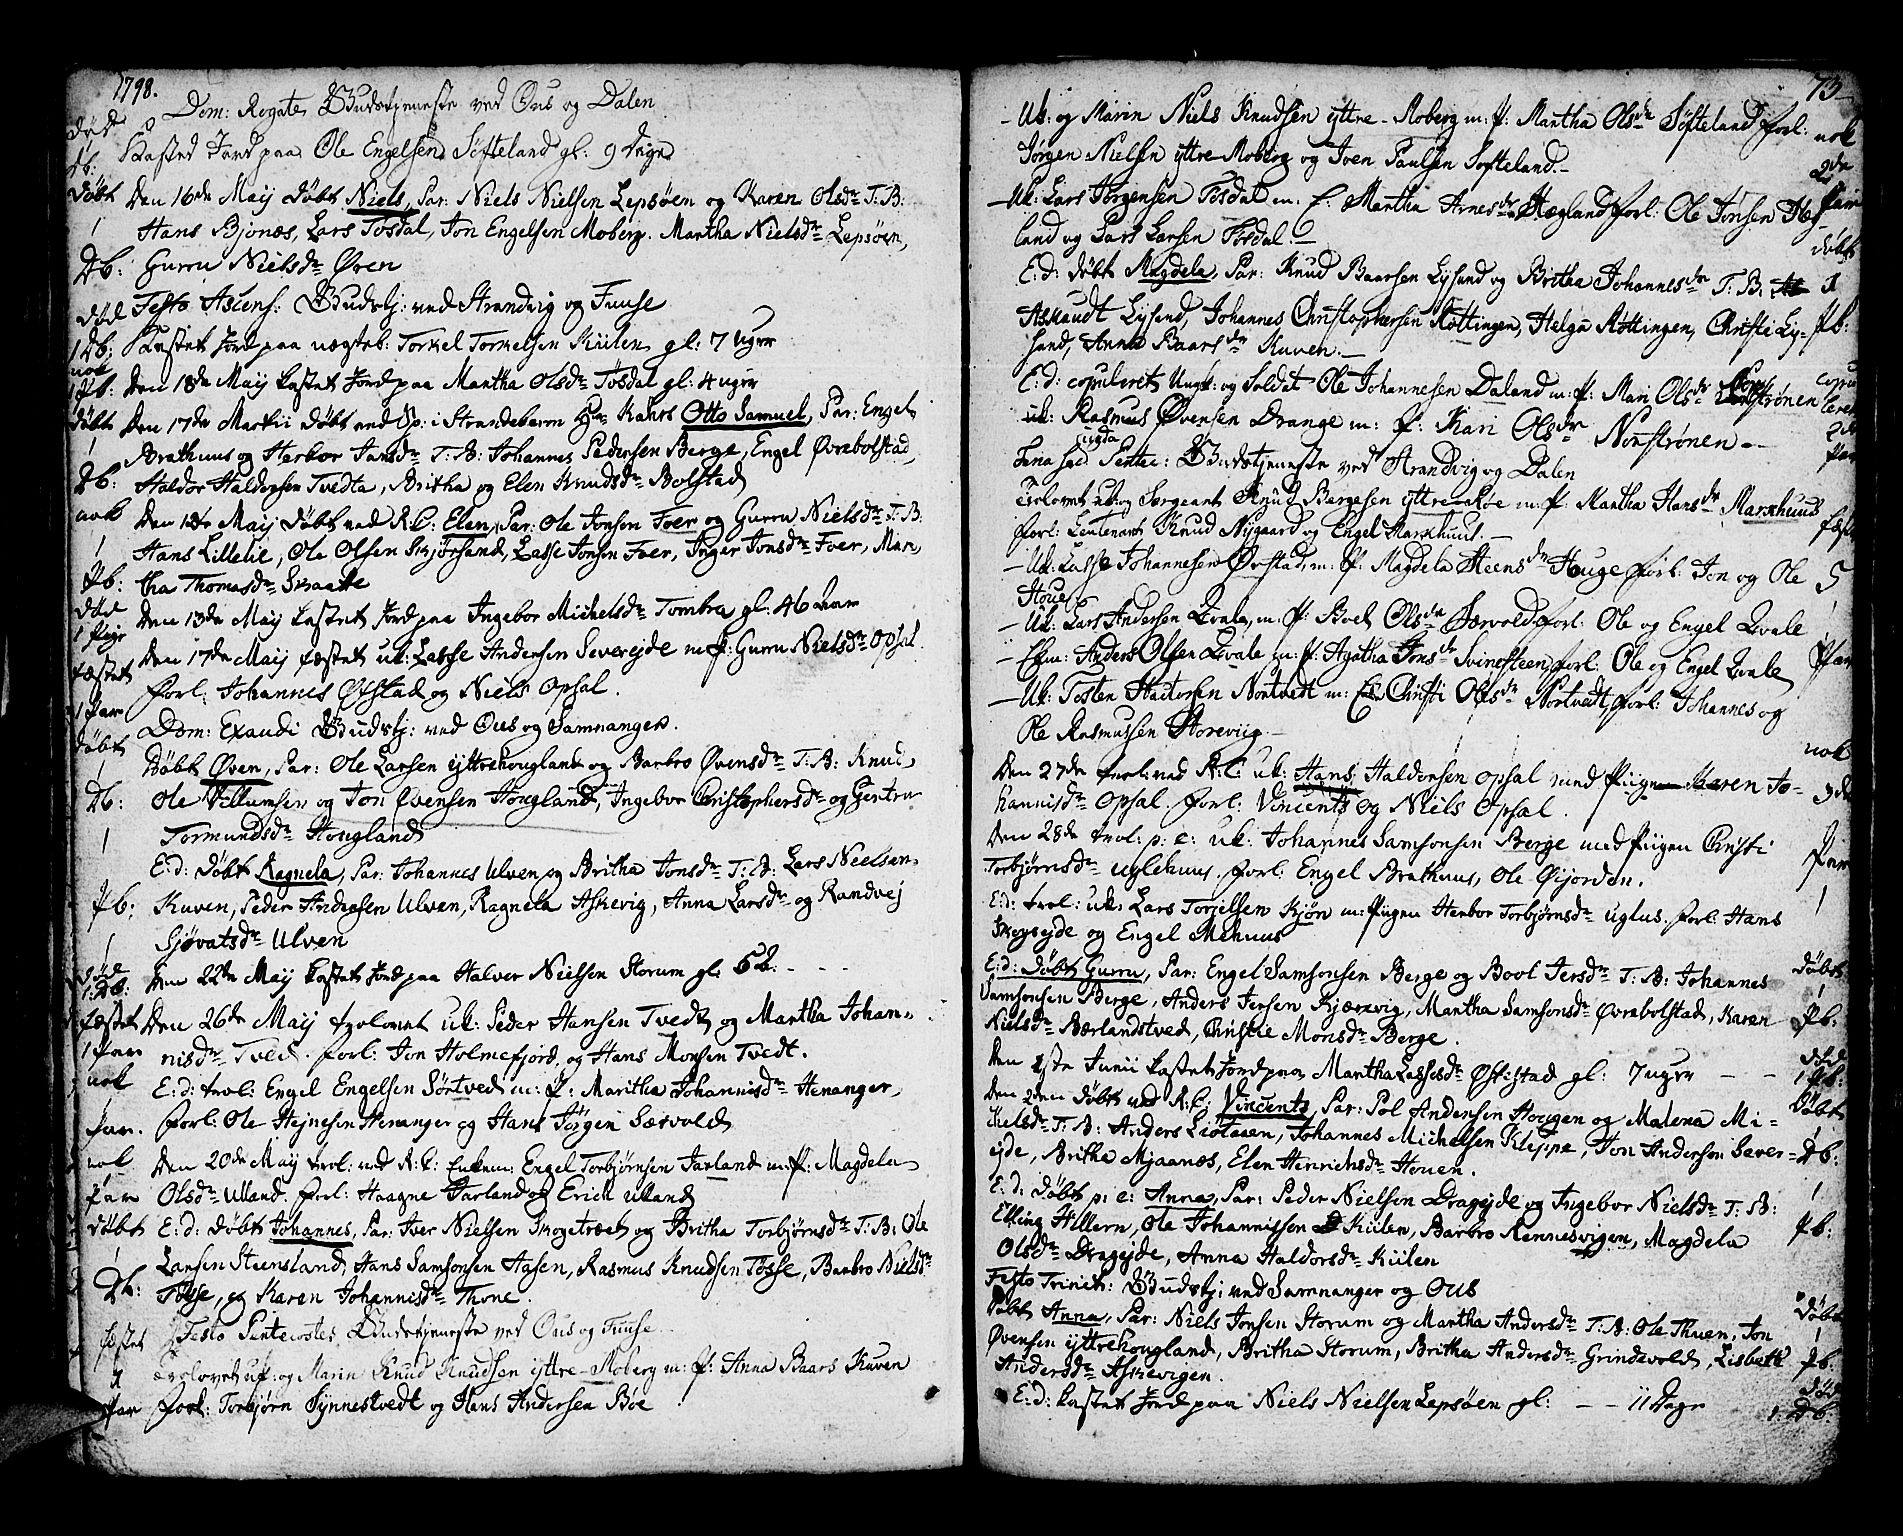 1798.
Dom: Rogate Gudstjeneste ved Ous og Dalen
død
Kasted Jord paa Ole Engelsen Søfteland gl: 9 dage
Db:
døbt Den 16de Maij døbt Niels, Par: Niels Nielsen Lepsøen og Karen Olsdr T:B:
1 Hans Bjønæs, Lars Tøsdal, Jon Engelsen Moberg. Martha Nielsdr Lepsøen,
Db: Gurru Nielsdr Øren
død Festo Ascens: Gudstj: ved Strandvig og Fuuse
1 Db: Kastet Jord paa uægteb: Torkel Torkelsen Kiilen gl: 7 uger
nok
1 Pb: Den 18de Maij kastet Jord paa Martha Olsdr Tøsdal gl: 4 uger
døbt Den 17de Martii døbt ved Sp: i Strandebarm Hr Kahrs Otto Samuel, Par: Engel
1 Brathuus og Herbor Jansdr T:B: Johannes Pedersen Berge, Engel Øvrebolstad,
Db: Haldor Haldorsen Tvedta, Britha og Elen Knudsdr Bolstad
nok Den 18de Maij døbt ved R.C: Elen, Par: Ole Jonsen Foer og Gurru Nielsdr T:B:
1 Hans Lillelie, Ole Olsen Skjørsand, Lasse Jonsen Foer, Inger Jonsdr Foer, Mar,
Pb: tha Thomasdr Skaatte
død Den 13de Maij kastet Jord paa Ingebor Michelsdr Tombra gl: 46 aar
1 Pige
fæstet Den 17de Maij fæstet uk: Lasse Andersen Severejde m: P: Gurru Nielsdr Opsal
Forl: Johannes Øfstad og Niels Opsal.
1 Par
Dom: Exaudi Gudstj: ved Ous og Samnanger.
døbt
1 Døbt Øven, Par: Ole Larsen yttrehougland og Barbro Øvensdr T:B: Knud
Db: Ole Villumsen og Jon Øvensen Hougland, Ingebor Christophersdr og Gertru
1 Tormundsdr Hougland
E:d: døbt Ragnela, Par: Johannes Ulven og Britha Jonsdr T:B: Lars Nielsen
Pb: Kuven, Peder Andersen Ulven, Ragnela Askevig, Anna Larsdr og Randvej
1 Sjøvatsdr Ulven
død Den 22de Maij kastet Jord paa Halver Nielsen Storum gl: 62. - - -
1: Db:
fæstet Den 26de Maij trolovet uk: Peder Hansen Tvedt og Martha Johan-
1 Par nisdr Tved. Forl: Jon Holmefjord og Hans Monsen Tvedt.
nok E:d: trol: Engel Engelsen Sørtved m: P: Maritha Johannisdr Henanger,
1 Par. Forl: Ole Hejnesen Henanger og Hans Jørgen Særvold
nok Den 20de Maij trol: ved R:C: Enkem: Engel Torbjørnsen Jarland m: P: Magdela
Par Olsdr Ulland. Forl: Haagne Jarland og Erick Ulland
døbt E:d: døbt Johannes, Par: Iver Nielsen Skogetræet og Britha Torbjørnsdr T:B: Ole
1 Larsen Steensland, Hans Samsonsen Aasen, Rasmus Knudsen Tøsse, Barbro Nielsdr
Db: Tøsse, og Karen Johannisdr Thone.
Festo Pentecostes Gudstjeneste ved Ous og Fuuse
fæstet
1 Trolovet uk: og Marin: Knud Knudsen yttre-Moberg m: P: Anna Baars Kuven
Par Forl: Torbjørn Synnestvedt og Hans Andersen Bøe
73
- Uk: og Marin Niels Knudsen yttre-Moberg m: P: Martha Olsdr Søfteland Forl: nok
Jørgen Nielsen yttre Moberg og Iven Paulsen Søfteland.-
2de
- Uk: Lars Jørgensen Tøsdal m: E: Martha Arnesdr Hægland Forl: Ole Jonsen Heg- Par
land og Lars Larsen Tøsdal.
døbt
E:d: døbt Magdela, Par: Knud Baarsen Lysand og Britha Johannesdr T:B: 1
Askaudt Lysend, Johannes Christophersen Røttingen, Helga Røttingen, Christi Ly- Pb:
sand, Anna Baarsdr Kuven.-
E:d: copuleret Ungk: og Soldat Ole Johannesen Daland m: P: Mari Olsdr Nordstrønen copu
leret
uk: Rasmus Øvensen Drange m: P: Kari Olsdr Nordstrønen -
2de
Par
Fena secunda Pentec: Gudstjeneste ved Strandvig og Dalen
Trolovet uk: og Sergeant Knud Børgesen yttreskøe m: P: Martha Hansdr Markhuus
Forl: Lieutenant Knud Nygaard og Engel Markhuus.-
fæstet
- Uk: Lasse Johannesen Øvstad, m: P: Magdela Steensdr Houge Forl: Jon og Ole 5
Houe
- Uk: Lars Andersen Qvale, m: P: Boel Olsdr Særvold Forl: Ole og Engel Qvale
- Ekm: Anders Olsen Qvale m: P: Agatha Jonsdr Svinesteen, Forl: Ole og Engel Qvale Par
- Uk: Tosten Hactorsen Nortvedt m: E: Christi Olsdr Nortvedt, Forl: Johannes og
Ole Rasmussen Storevig.-
nok
Den 27de trol: ved R:C: uk: Hans Haldorsen Opsal med Pigen Karen Jo-
hannisdr Opsal. Forl: Vincents og Niels Opsal.
3de
Den 28de trol: p: e: uk: Johannes Samsonsen Berge med Piigen Christi
Par
Torbjørnsdr uglehuus. Forl: Engel Brathuus, Ole Øijorden.
E:d: trol: uk: Lars Torjelsen Kjøn m: Piigen Herbor Torbjørnsdr uglus. Forl: Hans 1
Skogsejde og Engel Mehuus
E:d: døbt Gurru, Par: Engel Samsonsen Berge og Boel Jersdr T:B: Johannes døbt
Samsonsen Berge, Anders Jersen Kjærevig, Martha Samsonsdr Øvrebolstad, Karen 1
Nielsdr Bærlandstved, Christie Monsdr Berge. Pb:
Den 1ste Junii kastet Jord paa Martha Lassesdr Øfstestad gl: 7 uger - - død
1 Pb:
Den 2den døbt ved R:C: Vincents, Par: Pol Andersen Hougen og Malena Mi- døbt
kelsdr T:B: Anders Liøtaaen, Johannes Michelsen Kleppe, Jon Andersen Sever- 1
ejde, Britha Mjaanæs, Elen Henrichsdr Houen. Db:
E:d: døbt p: e: Anna, Par: Peder Nielsen Dragejde og Ingebor Nielsdr T:B: 1
Elling Hillern, Ole Johannissen Kiilen, Barbro Rennesvigen, Magdela Pb:
Olsdr Dragejde, Anna Haldorsdr Kiilen
Festo Trinit: Gudstj: ved Samnanger og Ous
Døbt Anna, Par: Niels Jonsen Storum og Martha Andersdr T:B: Ole Thuen, Jon døbt
Øvensen yttrehougland, Britha Storum, Britha Andersdr Grindevold, Lisbeth 1
Andersdr Askevigen. Pb:
E:d: kastet Jord paa Niels Nielsen Lepsøen gl: - - 11 Dage død
1: Db: